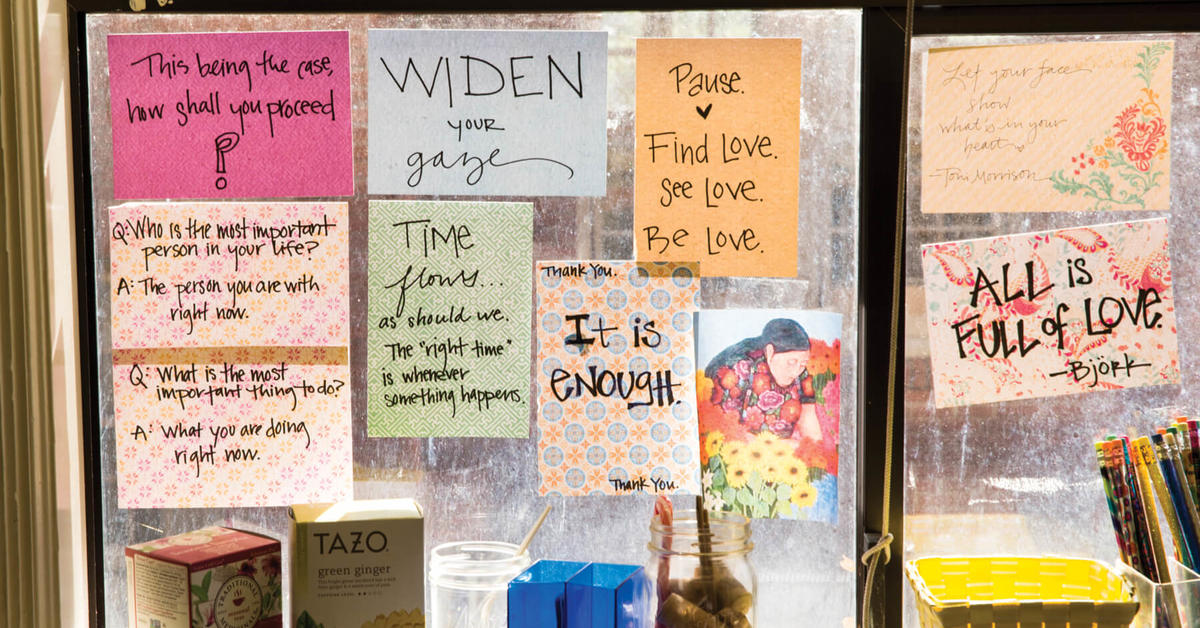 This being the case,
how shall you proceed
?
WIDEN
your
gaze
Pause.
Find Love.
See Love.
Be Love.
Let your face
show
what's in your
heart
-Toni Morrison
Q: Who is the most important
person in your life?
A: The person you are with
right now.
Q: What is the most
important thing to do?
A: What you are doing
right now.
TIME
flows...
as should we.
The "right time"
is whenever
something happens.
Thank You.
It is
ENOUGH.
Thank You.
ALL is
FULL of LOVE.
-Björk
TAZO
green ginger
TRADITIONAL